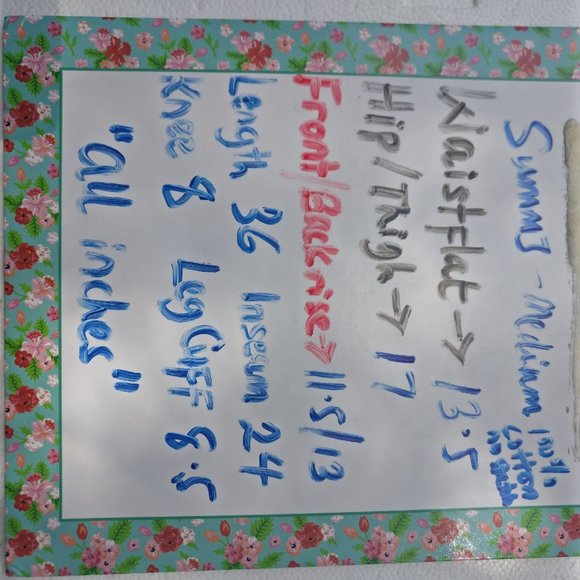 Summ3 - Medium 100% Cotton
WaistFlat → 13.5
Hip/Thigh → 17
Front/Backrise → 11.5/13
Length 36 Inseum 24
Knee 8 Leg CuFF 8.5
"all inches"